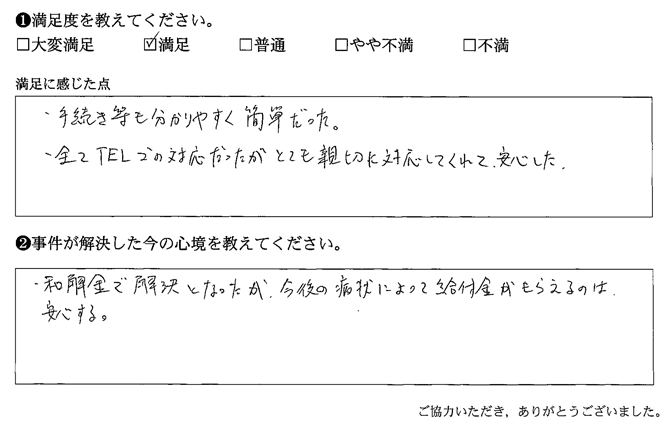 ❶満足度を教えてください。
□大変満足 ☑満足 □普通 □やや不満 □不満
満足に感じた点
・手続き等も分かりやすく簡単だった。
・全てTELでの対応だったがとても親切に対応してくれて、安心した.
❷事件が解決した今の心境を教えてください。
・和解金で解決となったが、今後の病状によって給付金がもらえるのは、
安心する。
ご協力いただき，ありがとうございました。